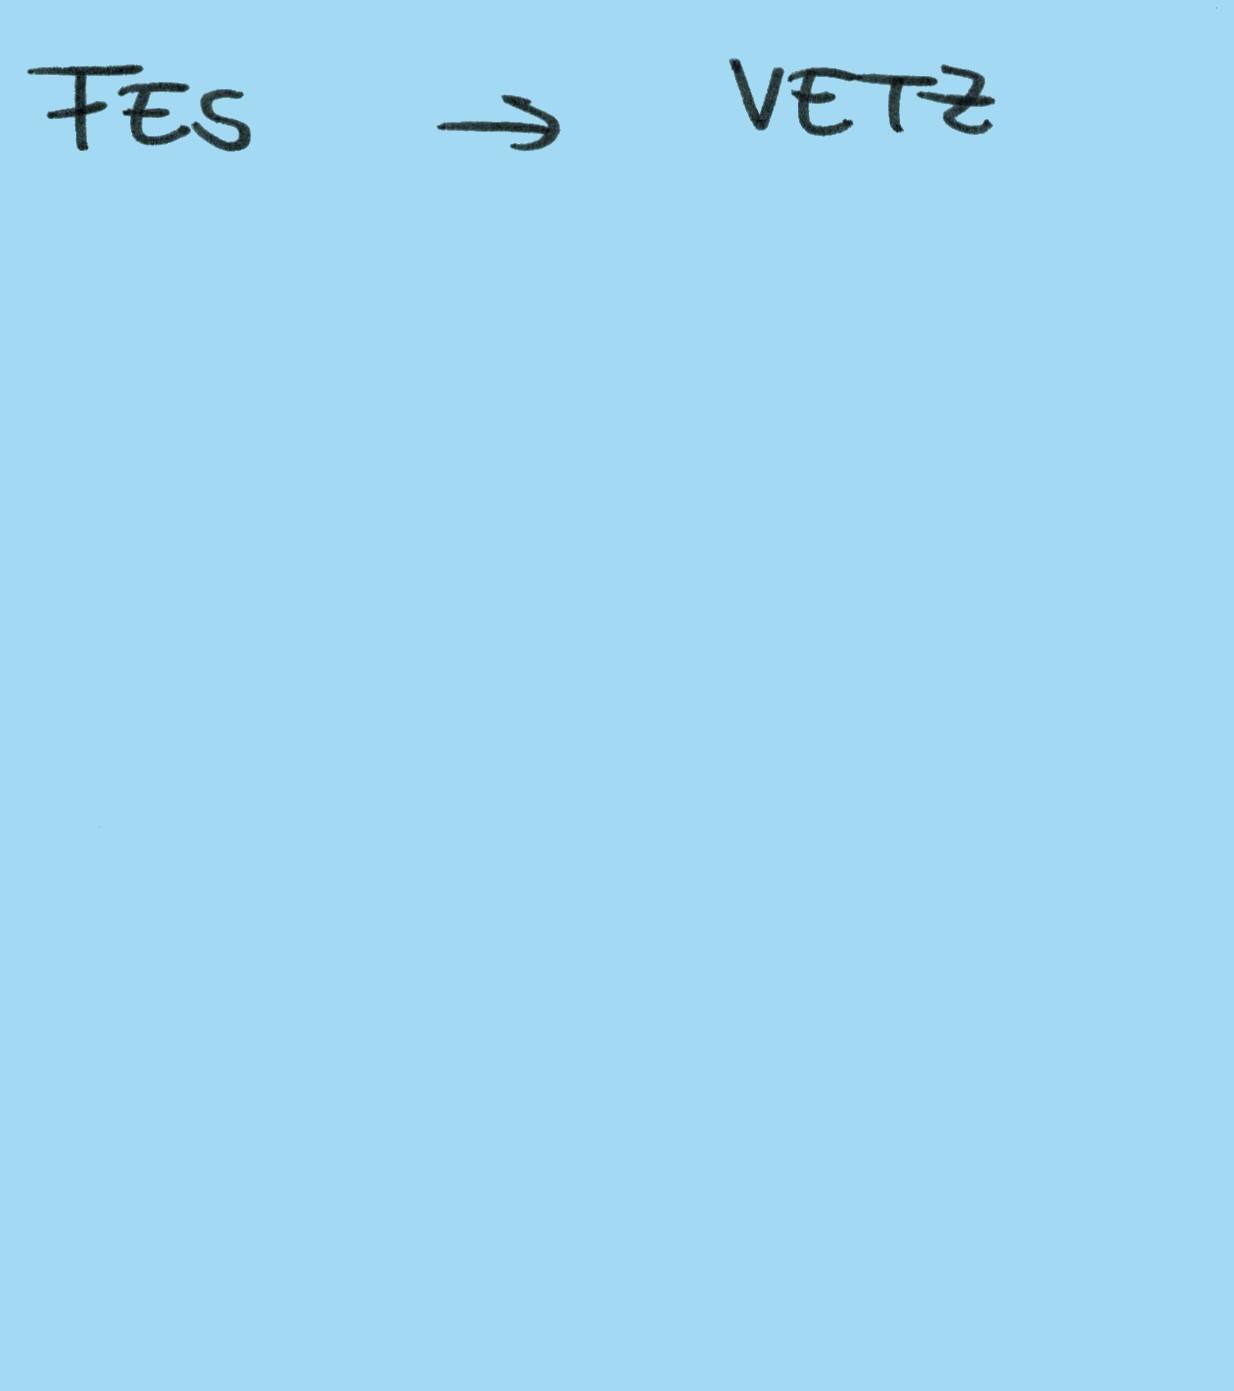 FES → VETZ